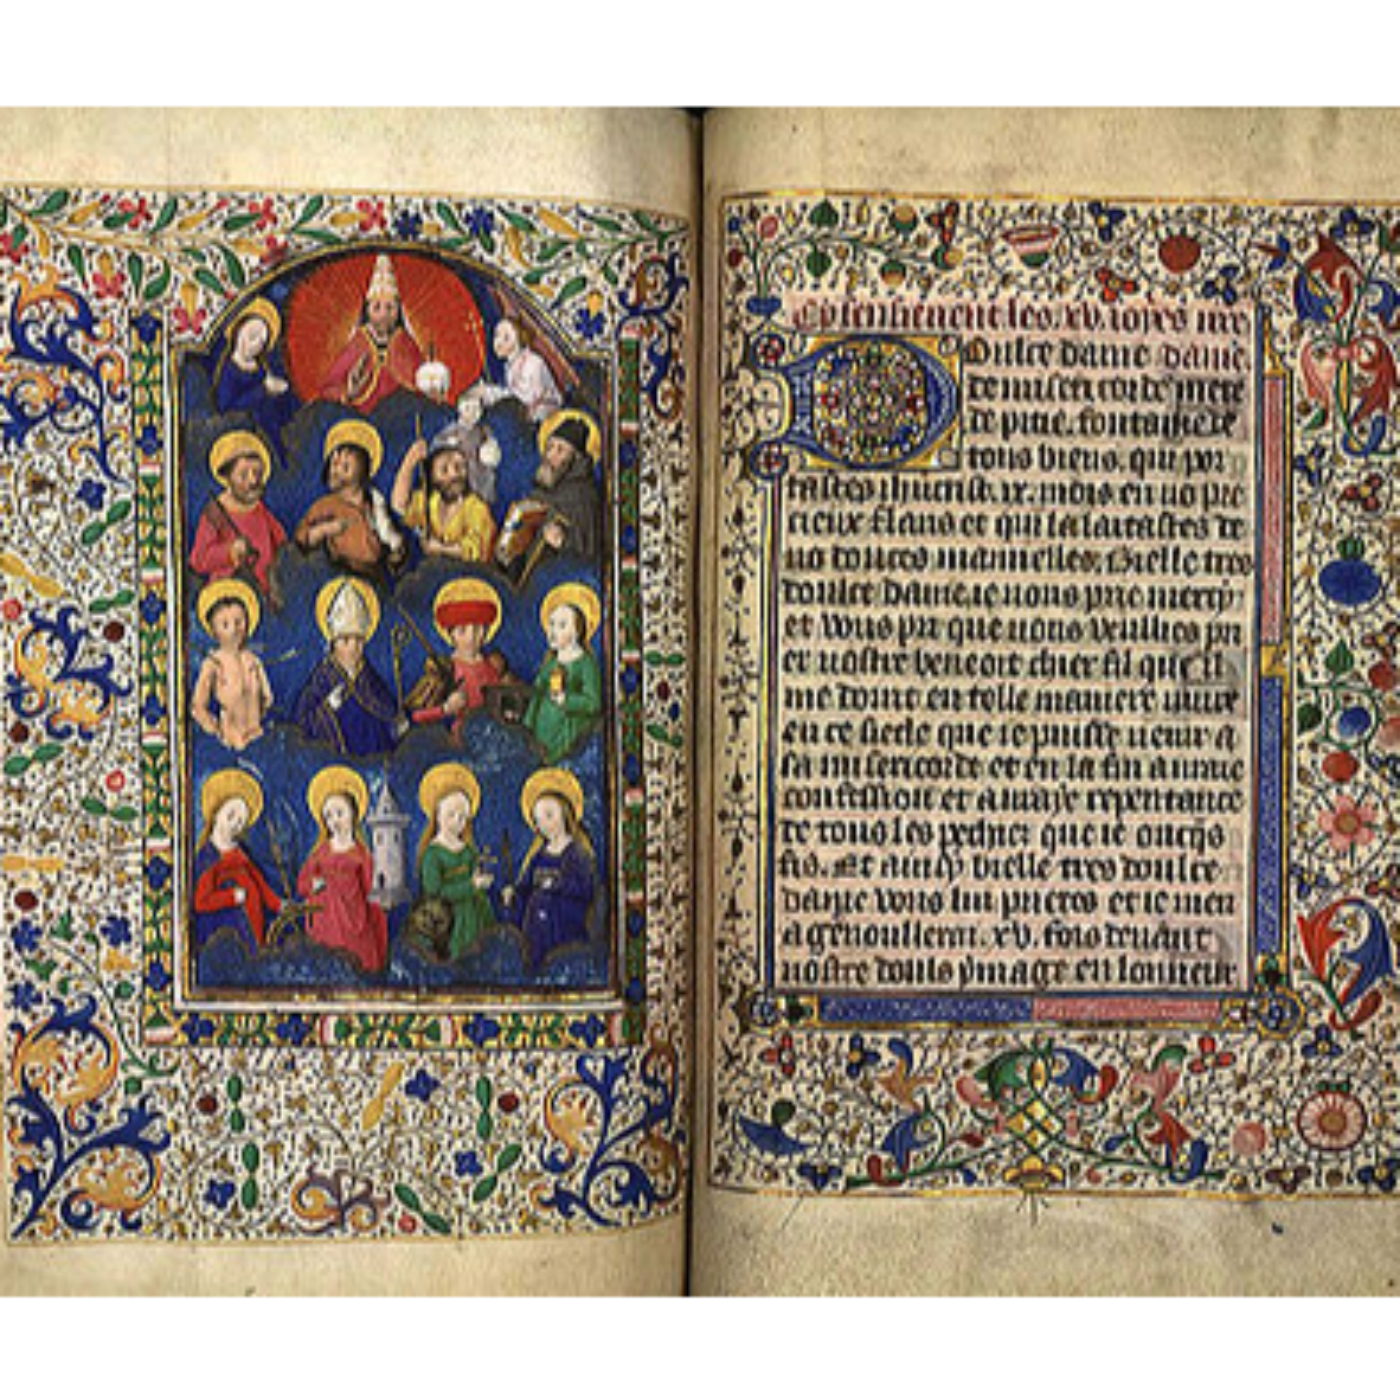 Cy commencent les .xv. ioies nre
Doulce dame dame
de misericorde mere
de pitie. fontaine de
tous biens. que por
tastes ihucrist. ix. mois en uo pre
cieux flans et qui lalaitastes de
uo doulces mamelles. Bielle tres
doulce dame, ie uous prie mercy
et vous pri que uous veullies pri
er uostre beneoit chier fil que il
me doint en telle maniere uiure
en ce siecle que ie puisse uenir a
sa misericorde et en la fin a uraie
confession et a uraye repentance
de tous les pechiet que ie oncqs
fis. Et aussy bielle tres doulce
dame vous lui prieres et ie men
agenoullerai .xv. fois deuant
uostre ymage en lonneur